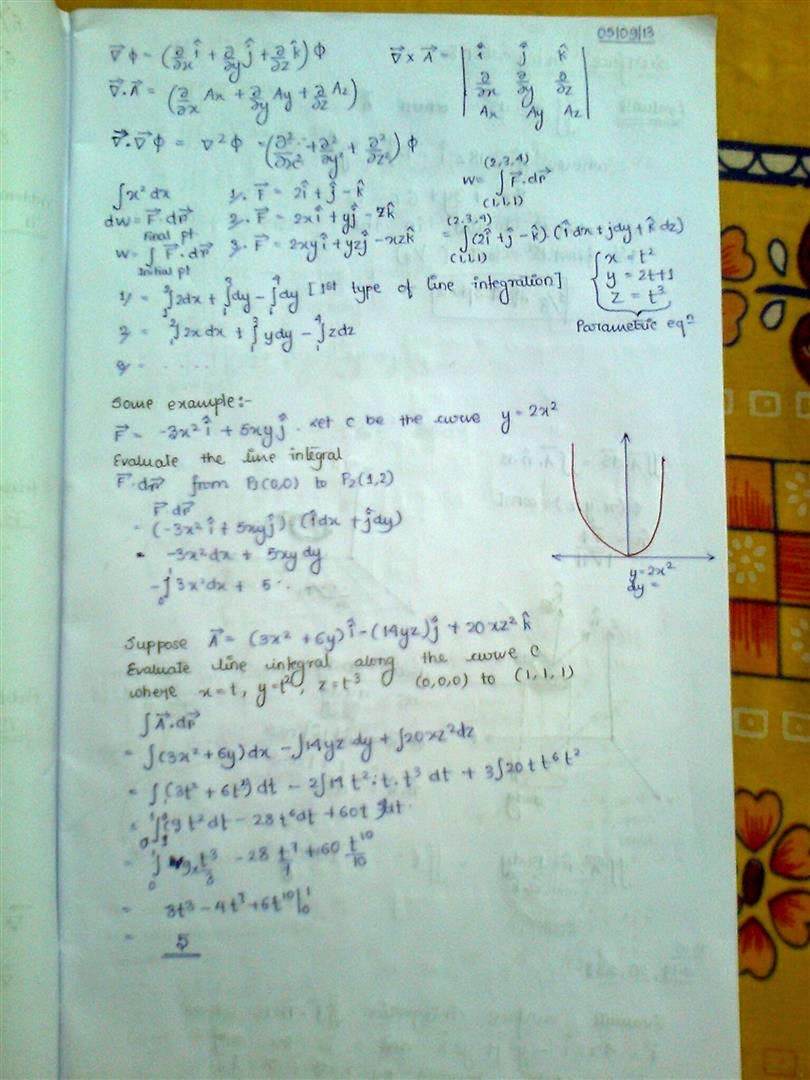 05/09/13
∇⃗ϕ = (∂/∂x î + ∂/∂y ĵ + ∂/∂z k̂) ϕ
∇⃗ × A⃗ = | î ĵ k̂ |
| ∂/∂x ∂/∂y ∂/∂z |
| Ax Ay Az |
∇⃗.A⃗ = (∂/∂x Ax + ∂/∂y Ay + ∂/∂z Az)
∇⃗.∇⃗ϕ = ∇²ϕ = (∂²/∂x² + ∂²/∂y² + ∂²/∂z²) ϕ
∫x² dx
dw = F⃗.dr⃗
Final pt
w = ∫ F⃗.dr⃗
Initial pt
1/. F⃗ = 2î + ĵ - k̂
2/. F⃗ = 2xî + yĵ - zk̂
3/. F⃗ = 2xyî + yzĵ - xzk̂
(2,3,4)
w = ∫ F⃗.dr⃗
(1,1,1)
(2,3,4)
= ∫ (2î + ĵ - k̂) (î dx + ĵdy + k̂ dz)
(1,1,1)
1/ = ₁∫² 2dx + ₁∫³ dy - ₁∫⁴ dy [1st type of line integration]
2/ = ₁∫² 2x dx + ₁∫³ y dy - ₁∫⁴ z dz
3/ = .....
{ x = t²
y = 2t+1
z = t³
Parametric eqn
Some example:-
F⃗ = -3x² î + 5xy ĵ. Let C be the curve y = 2x²
Evaluate the line integral
F⃗.dr⃗ from P₁(0,0) to P₂(1,2)
F⃗.dr⃗
= (-3x² î + 5xyĵ) (îdx + ĵdy)
= -3x²dx + 5xy dy
-₀∫¹ 3x²dx + 5 ..
y=2x²
dy =
Suppose A⃗ = (3x² + 6y) î - (14yz) ĵ + 20xz² k̂
Evaluate line integral along the curve C
where x=t, y=t², z=t³ (0,0,0) to (1,1,1)
∫A⃗.dr⃗
= ∫(3x²+6y)dx - ∫14yz dy + ∫20xz²dz
= ∫(3t² + 6t²) dt - 2∫14 t². t. t³ dt + 3∫20 t t⁶ t²
= ₀∫¹ 9t²dt - 28t⁶dt + 60t⁹dt
= ₀∫¹ 9x t³/3 - 28 t⁷/7 + 60 t¹⁰/10
= 3t³ - 4t⁷ + 6t¹⁰|₀¹
= 5